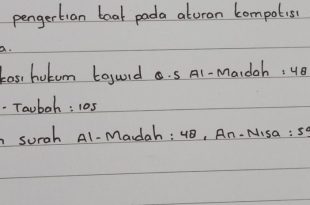 pengertian taat pada aturan kompetisi
a.
hukum tajwid Q.S Al-Maidah : 48
- Taubah : 105
surah Al-Maidah : 48, An-Nisa : 5